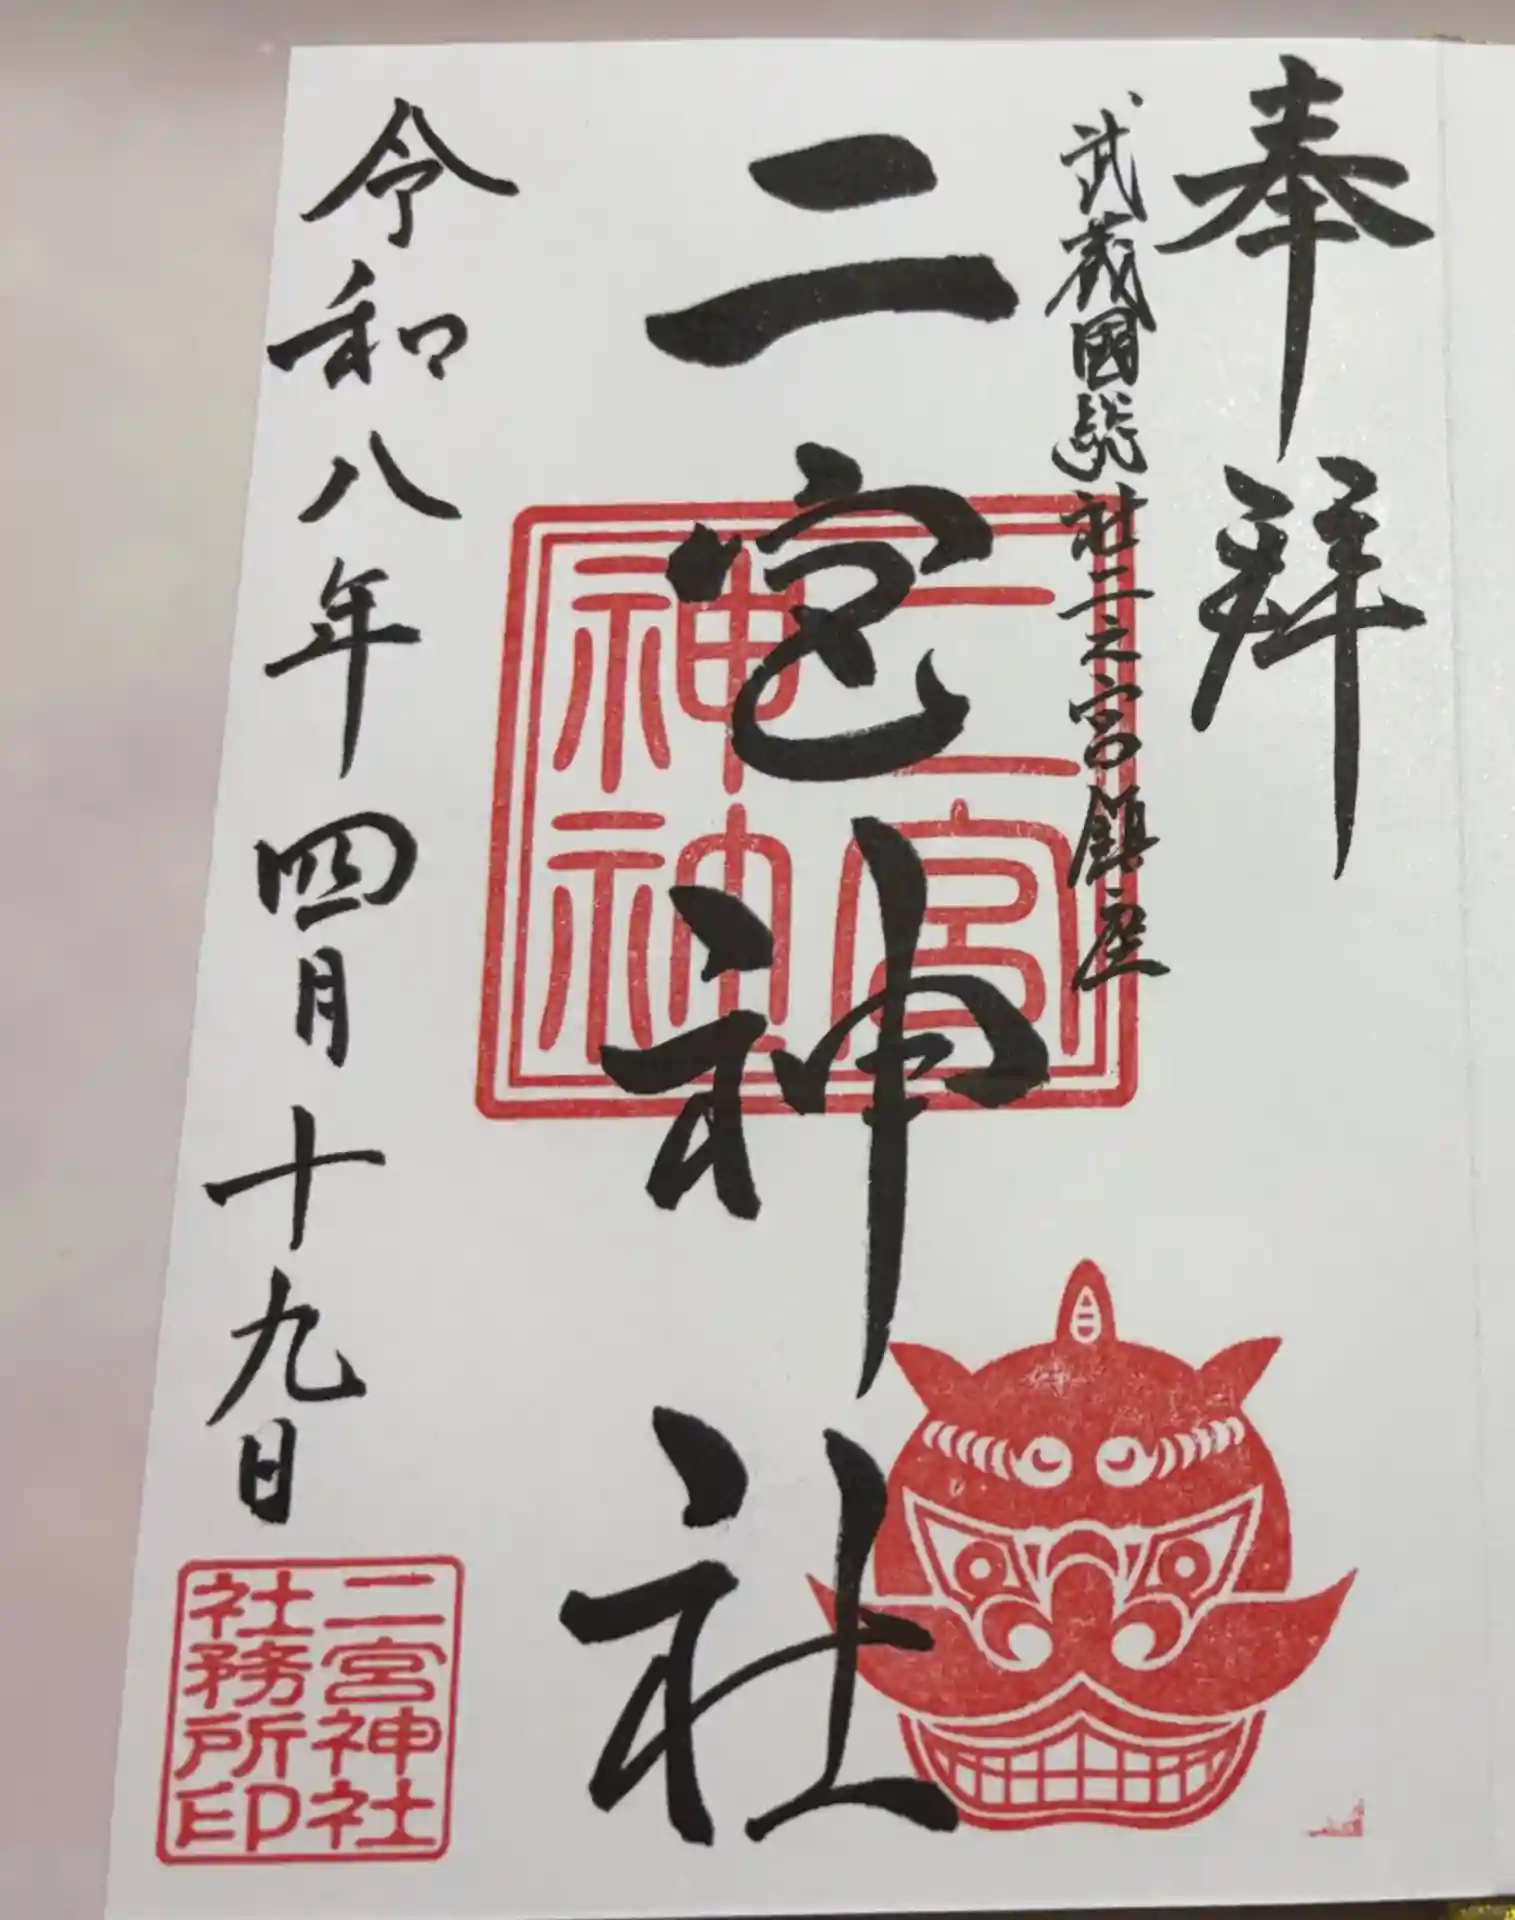 奉拝
武蔵國総社二之宮鎮座
二宮神社
二宮
神社
令和八年四月十九日
二宮神社
社務所印